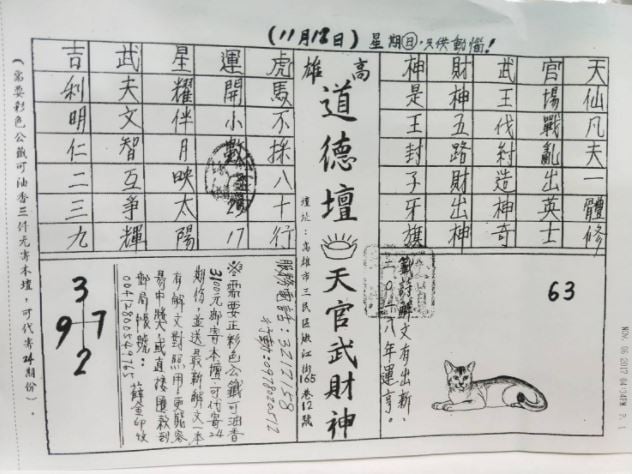 (11月12日) 星期日
高雄
道德壇
天官武財神
壇址：高雄市三民區嫩江街165巷12號
天仙凡夫一體修
官場戰亂出英士
武王伐紂造神奇
財神五路財出神
神是王封子牙旗
虎馬不採八十行
運開小數
17
星耀伴月映太陽
武夫文智互爭輝
吉利明仁二三九
63
籤詩解文有出新
二〇一八年運亨。
服務電話：3217158
※需要正彩色公籤可油香
3100元郵寄本壇可代寄24
期份，並送最新解文一本
有解文對照用，更能容
易中獎，或直接匯款到
郵局帳號：
3
9 7
2
(需要彩色公籤可油香三仟元寄本壇，可代寄24期份)。
NOV. 06 2017 04:04PM P. 1